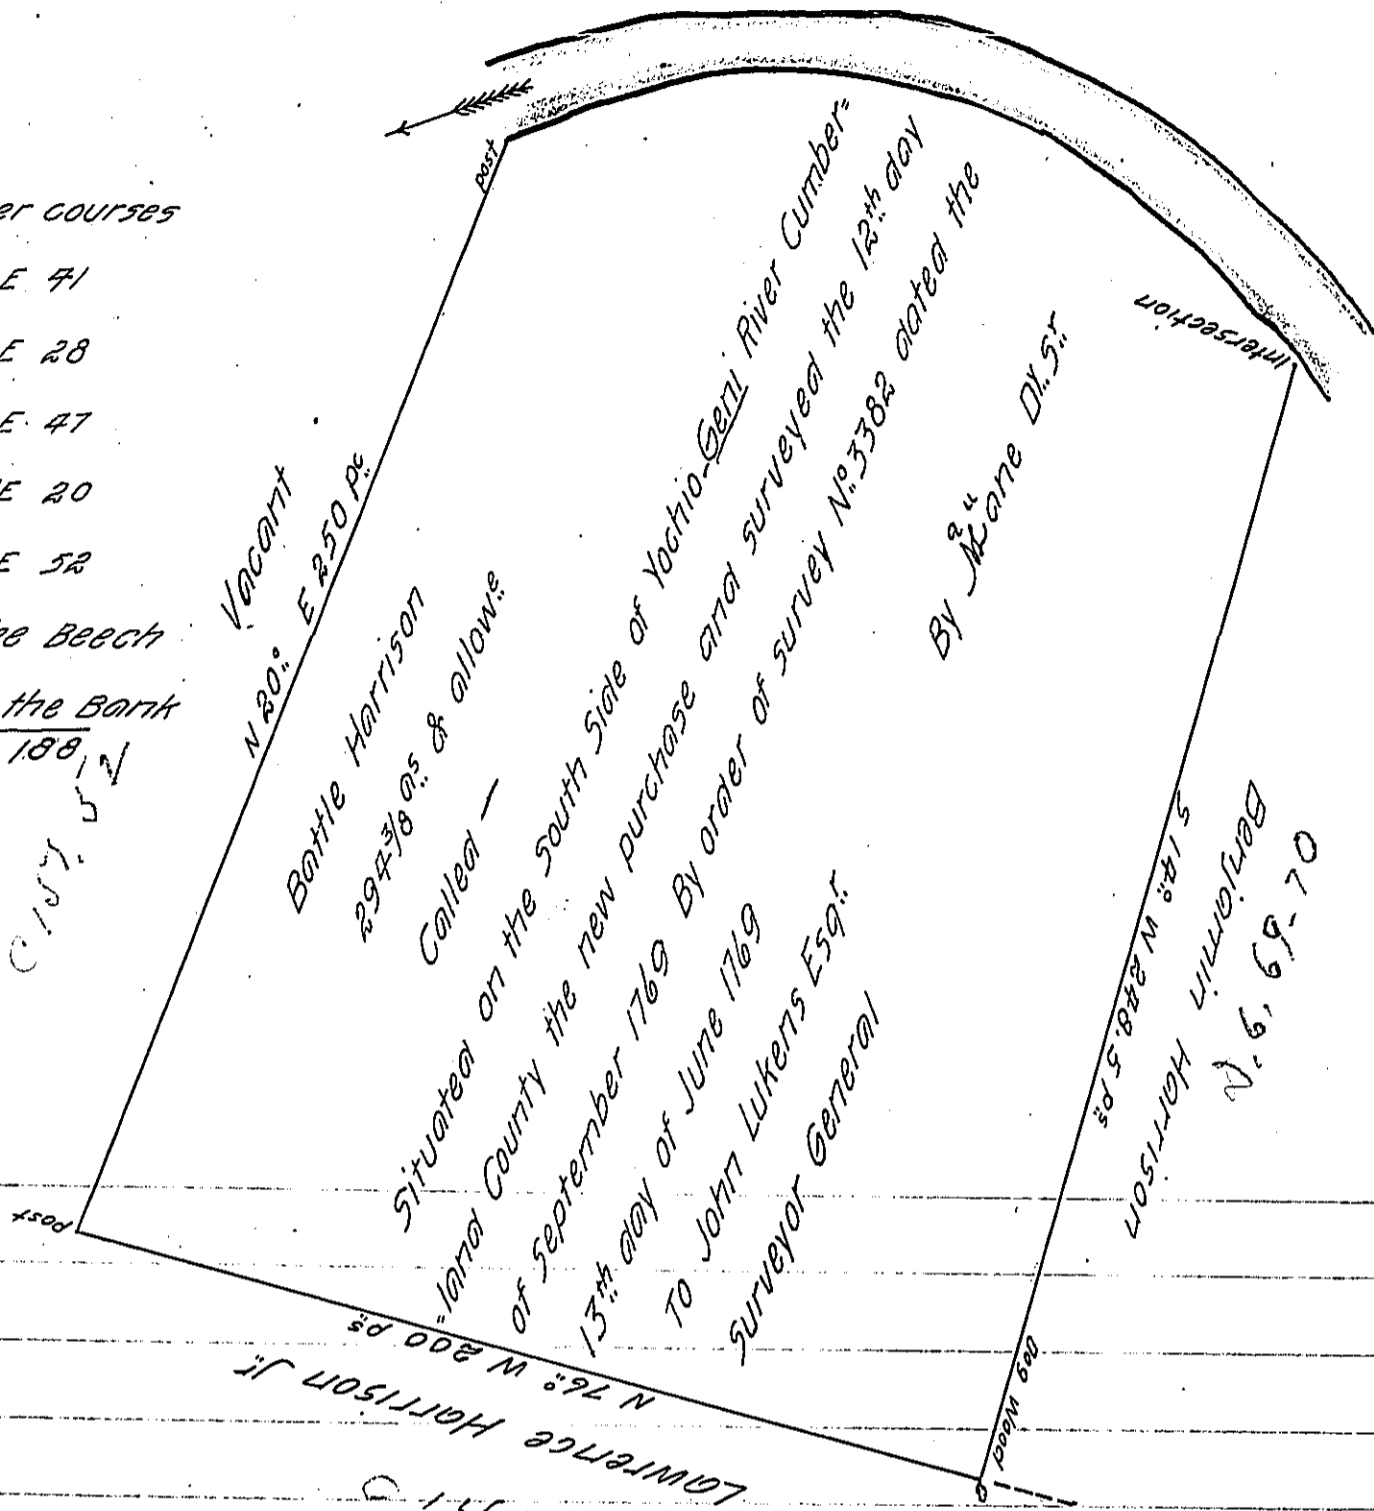 er courses
E 41
E 28
E 47
E 20
E 52
he Beech
the Bank
188
C 157, 52
Vacant
N 20° E 250 pc
post
Battle Harrison
294 3/8 as & allowe
Called —
Situated on the South Side of Yochio-Geni River Cumber=
"land County the new purchase and surveyed the 12th day
of September 1769 By order of survey No 3382 dated the
13th day of June 1769
To John Lukens Esqr
Surveyor General
By Dy. Sr
Intersection
S 14° W 248.5 ps
Benjamin Harrison
D. 6, 69-70
Dog Wood
N 76° W 200 ps
Lawrence Harrison Jr
post